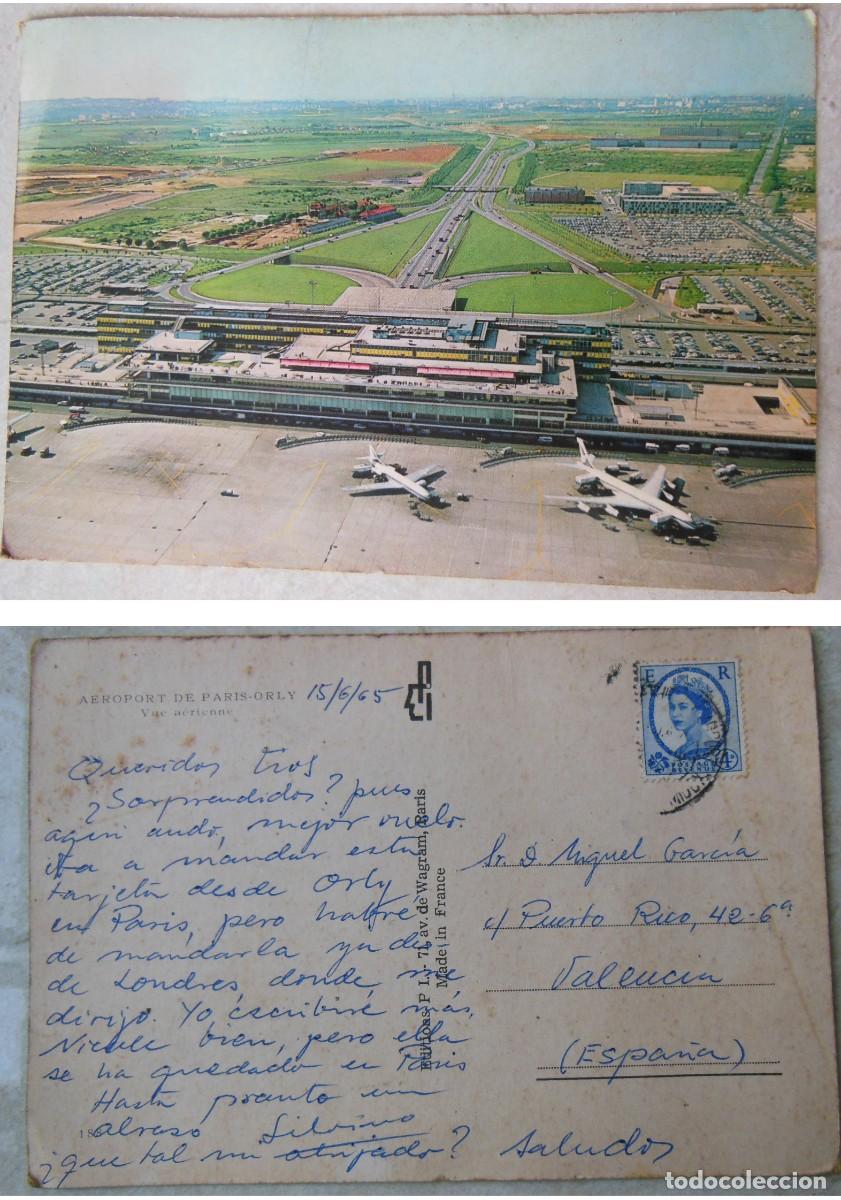 AEROPORT DE PARIS-ORLY 15/6/65
Vue aérienne
E R
POSTAGE
REVENUE
4D
Queridos tios
¿Sorprendidos? pues
aqui ando, mejor vuelo.
iba a mandar esta
tarjeta desde Orly
en Paris, pero habré
de mandarla ya des
de Londres donde me
dirijo. Yo escribiré más.
Nicole bien, pero ella
se ha quedado en Paris
Hasta pronto un
abraso Silvino
¿que tal mi ahijado? Saludos
Editions P. I. - 71, av. de Wagram, Paris
Made in France
Sr. D. Miguel García
c/ Puerto Rico, 42-6ª
Valencia
(España)
todocoleccion